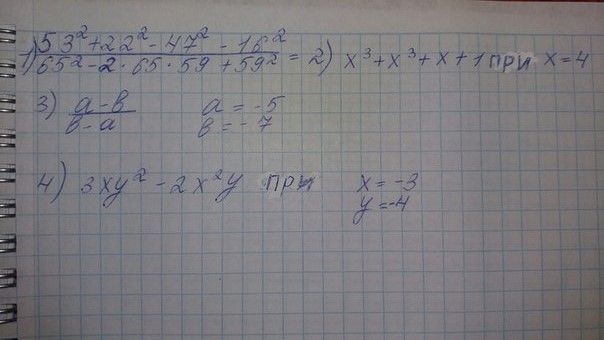 1) (53² + 22² - 47² - 16²) / (65² - 2 · 65 · 59 + 59²) =
2) x³ + x³ + x + 1 при x = 4
3) (a - b) / (b - a) a = -5
b = -7
4) 3xy² - 2x²y при x = -3
y = -4